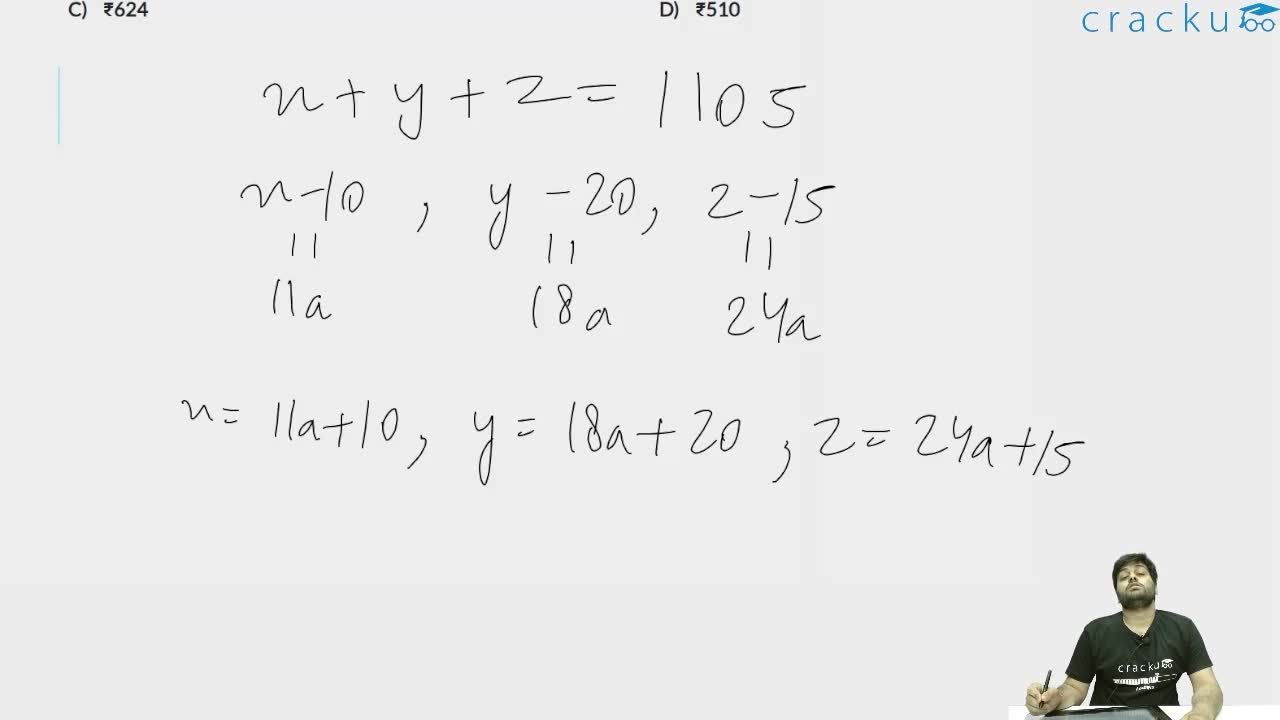 C) ₹624 D) ₹510
cracku
x + y + z = 1105
x - 10 , y - 20, z - 15
11a 18a 24a
x = 11a + 10, y = 18a + 20, z = 24a + 15
cracku